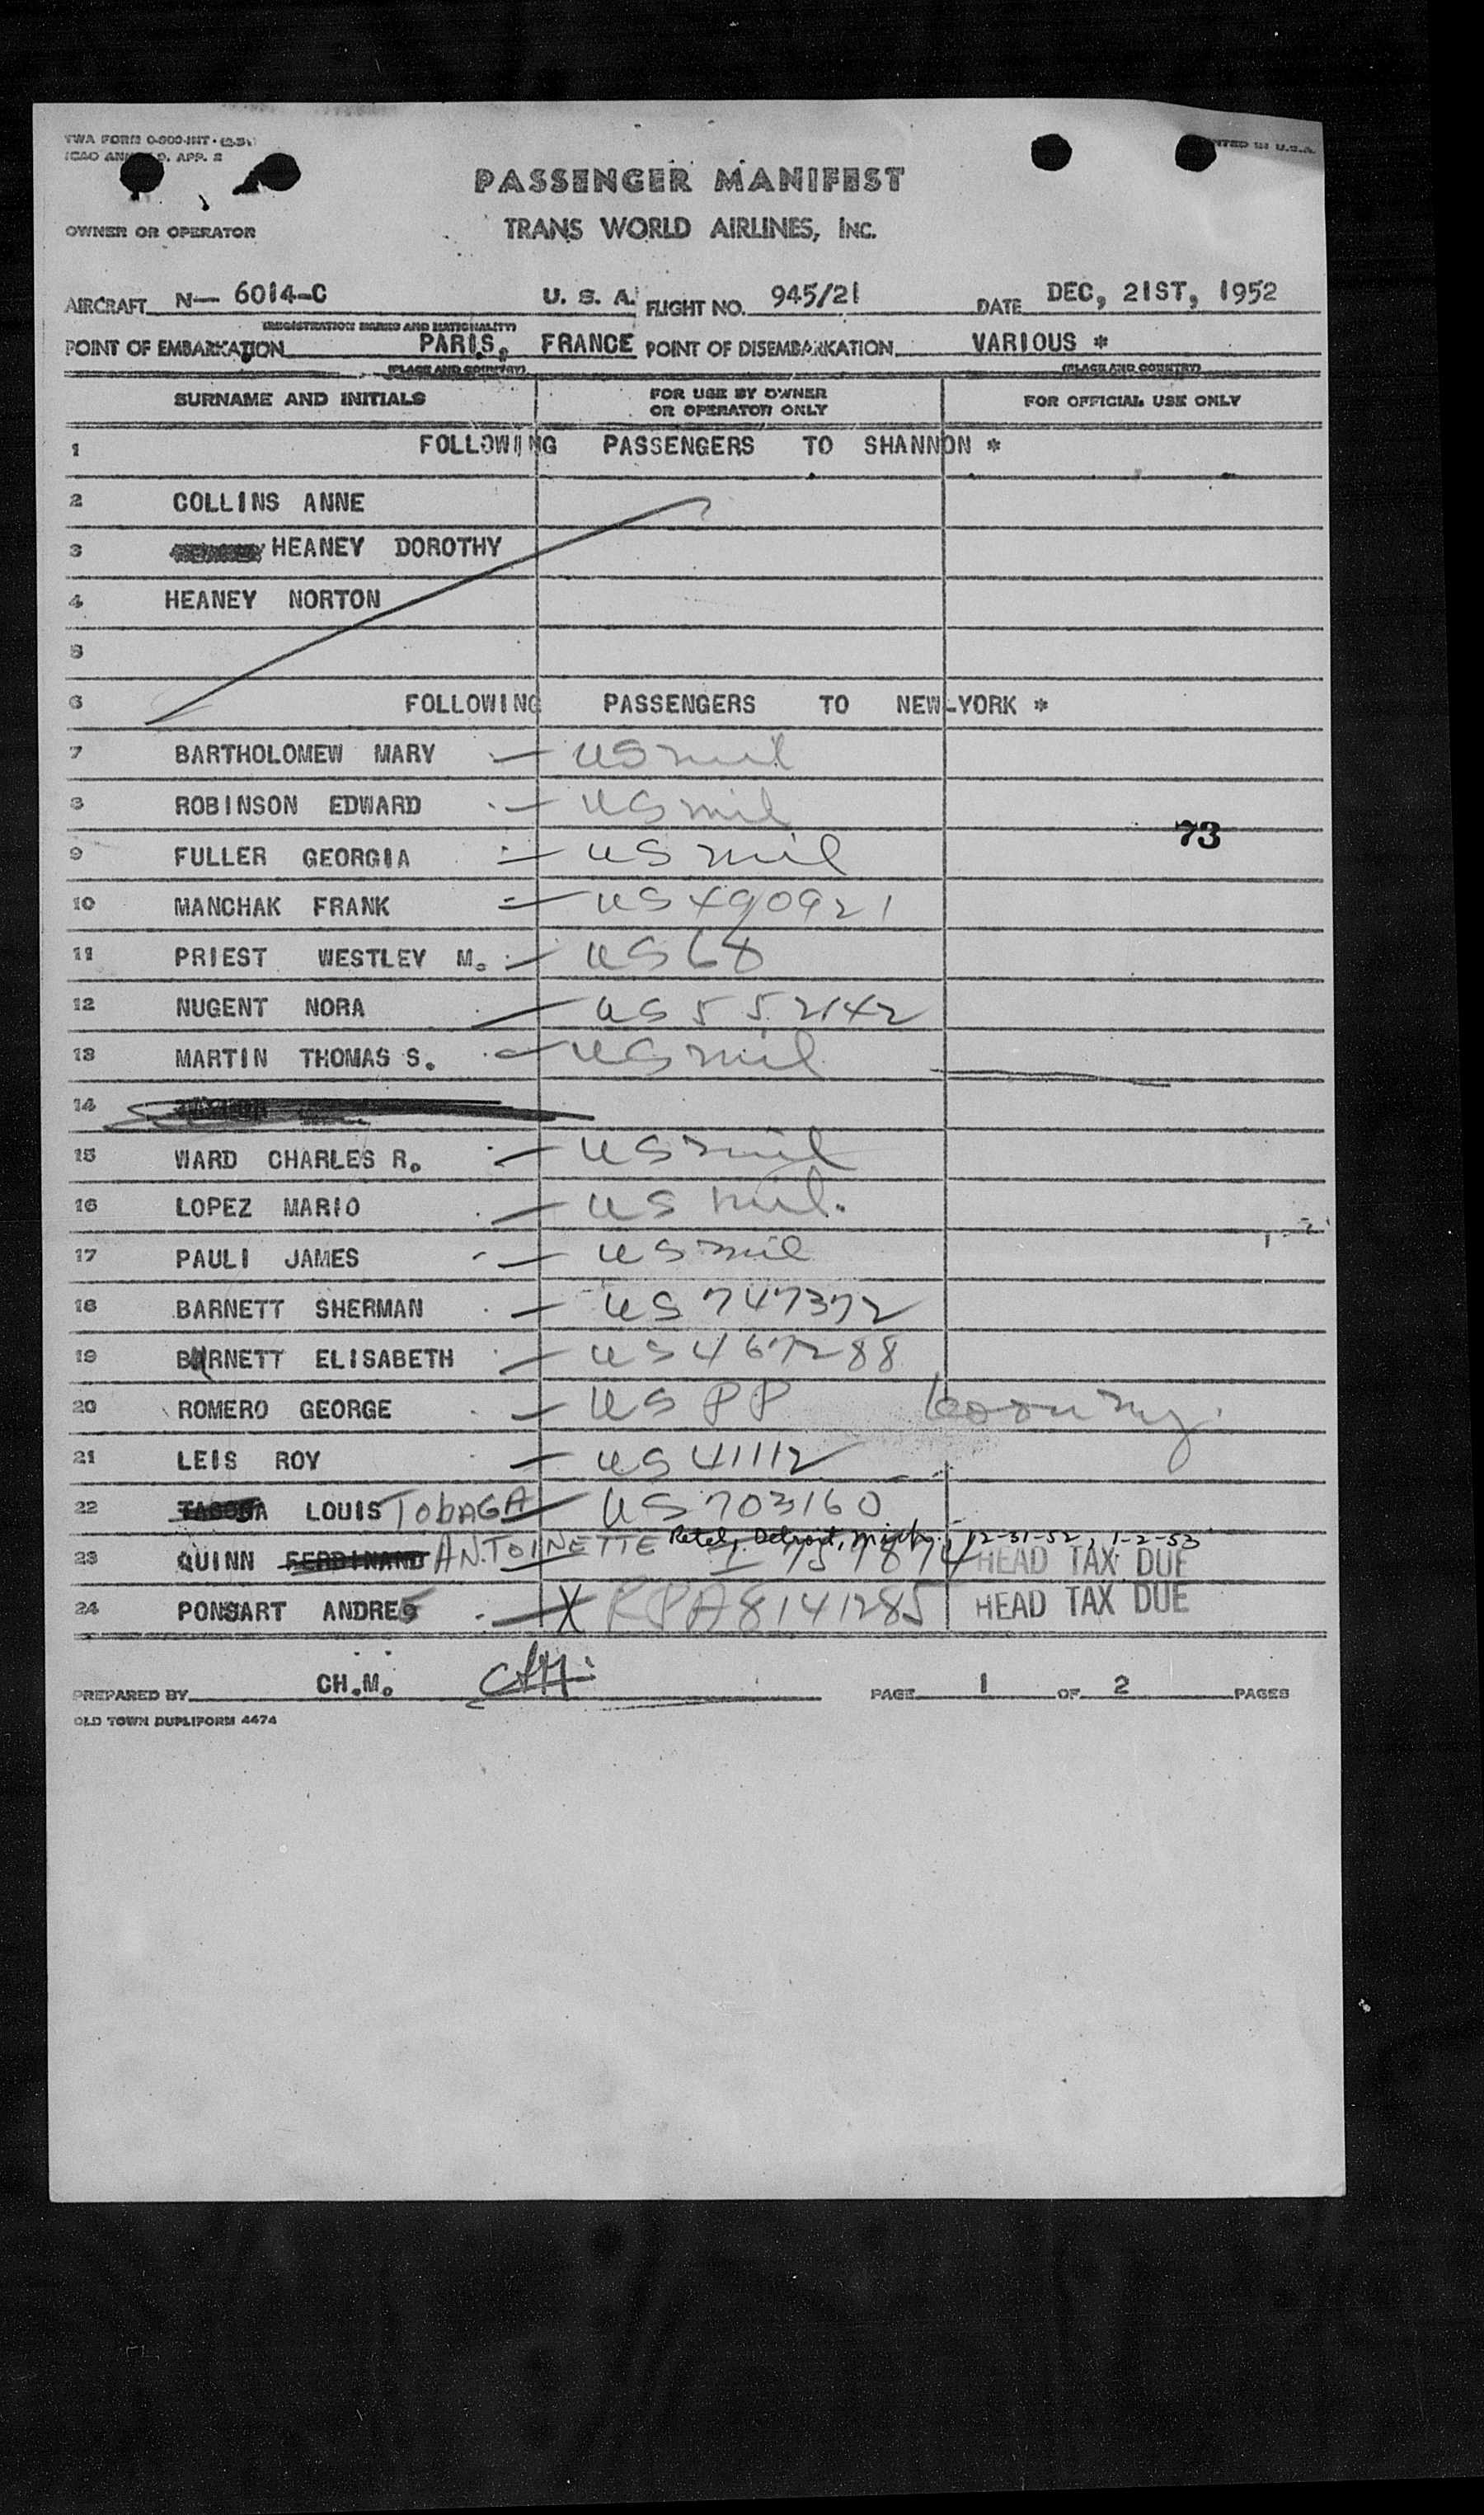 TWA FORM O-900-INT
ICAO ANNEX 9, APP. 2
PRINTED IN U.S.A.
PASSENGER MANIFEST
TRANS WORLD AIRLINES, INC.
OWNER OR OPERATOR
AIRCRAFT N— 6014-C U. S. A. FLIGHT NO. 945/21 DATE DEC, 21ST, 1952
(REGISTRATION MARKS AND NATIONALITY)
POINT OF EMBARKATION PARIS, FRANCE POINT OF DISEMBARKATION VARIOUS *
(PLACE AND COUNTRY) (PLACE AND COUNTRY)
SURNAME AND INITIALS FOR USE BY OWNER OR OPERATOR ONLY FOR OFFICIAL USE ONLY
1 FOLLOWING PASSENGERS TO SHANNON *
2 COLLINS ANNE
3 HEANEY DOROTHY
4 HEANEY NORTON
5
6 FOLLOWING PASSENGERS TO NEW-YORK *
7 BARTHOLOMEW MARY — US mil
8 ROBINSON EDWARD — US mil
73
9 FULLER GEORGIA — US mil
10 MANCHAK FRANK — US 490921
11 PRIEST WESTLEY M. — US 68
12 NUGENT NORA — US 552142
13 MARTIN THOMAS S. — US mil
14
15 WARD CHARLES R. — US mil
16 LOPEZ MARIO — US mil.
17 PAULI JAMES — US mil
18 BARNETT SHERMAN — US 747372
19 BARNETT ELISABETH — US 467288
20 ROMERO GEORGE — US PP
21 LEIS ROY — US 41112
22 LOUIS TOBAGA — US 703160
Detroit, Mich., 12-31-52, 1-2-53
23 QUINN FERDINAND ANTOINETTE HEAD TAX DUE
24 PONSART ANDRE — X RPA8141285 HEAD TAX DUE
PREPARED BY CH.M. PAGE 1 OF 2 PAGES
OLD TOWN DUPLIFORM 4474